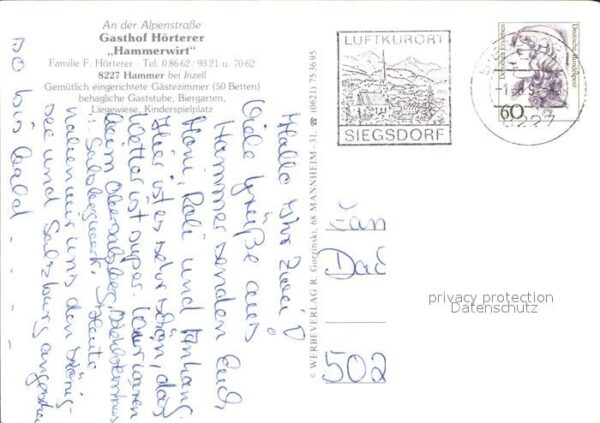 An der Alpenstraße
Gasthof Hörterer
„Hammerwirt"
Familie F. Hörterer · Tel. 0 86 62 / 93 21 u. 70 62
8227 Hammer bei Inzell
Gemütlich eingerichtete Gästezimmer (50 Betten)
behagliche Gaststube, Biergarten,
Liegewiese, Kinderspielplatz
Hallo Ihr zwei!
Viele Grüße aus
Hammer senden Euch
Moni, Rali und Anhang.
Hier ist es sehr schön, das
Wetter ist super. Wir waren
beim Obersalzberg,
Salzbergwerk. Heute
haben wir uns den König-
see und Salzburg angesehen
so bis bald
© WERBEVERLAG R. Gorzinski, 68 MANNHEIM - 31, ☎ (0621) 75 36 95
LUFTKURORT
SIEGSDORF
8227
Deutsche Bundespost
60
Fan
Dac
502
privacy protection
Datenschutz